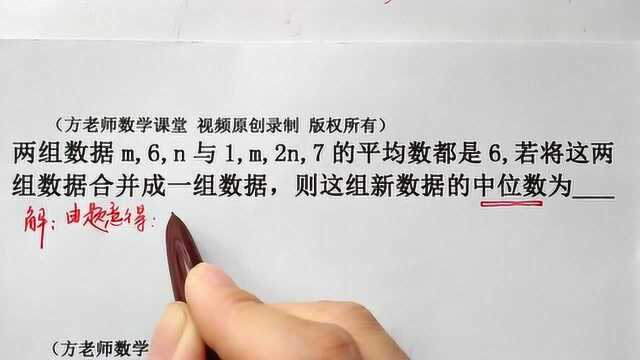 （方老师数学课堂 视频原创录制 版权所有）
两组数据 m,6,n 与 1,m,2n,7 的平均数都是 6,若将这两
组数据合并成一组数据，则这组新数据的中位数为___
解：由题意得：
（方老师数学